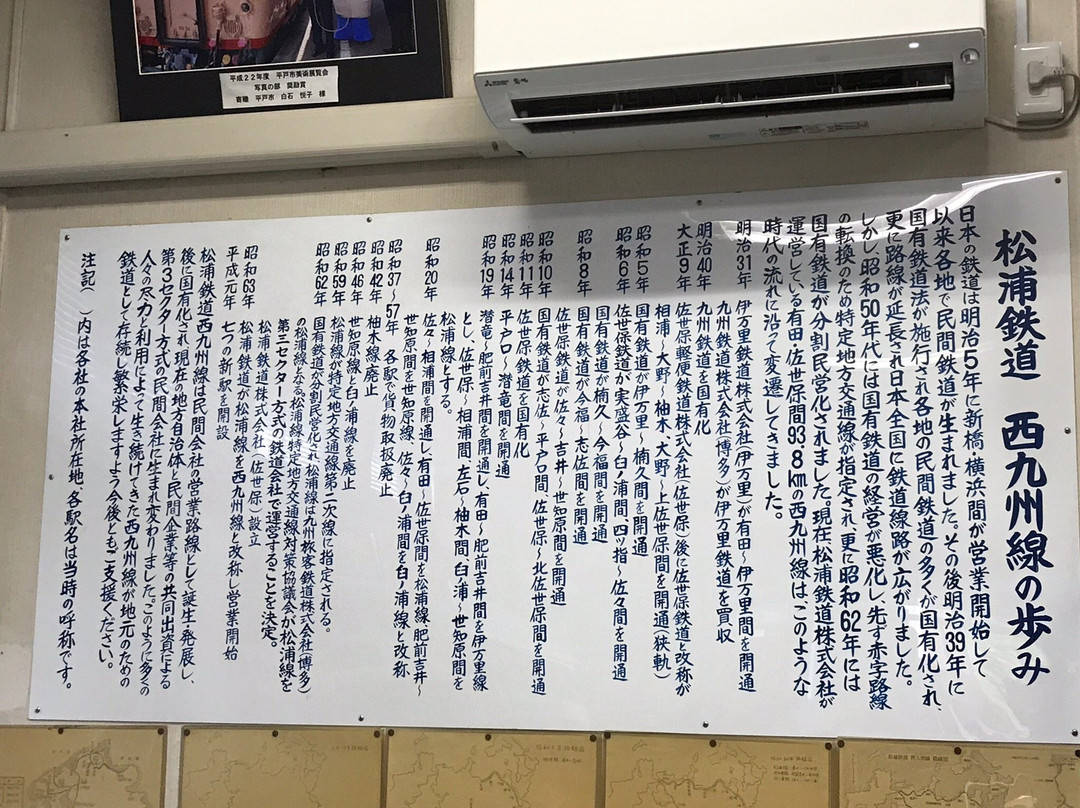 平成22年度 平戸市美術展覧会
写真の部 奨励賞
寄贈 平戸市 白石 悦子 様
松浦鉄道 西九州線の歩み
日本の鉄道は明治5年に新橋・横浜間が営業開始して
以来各地で民間鉄道が生まれました。その後明治39年に
国有鉄道法が施行され各地の民間鉄道の多くが国有化され、
更に路線が延長され日本全国に鉄道線路が広がりました。
しかし、昭和50年代には国有鉄道の経営が悪化し、先ず赤字路線
の転換のため特定地方交通線が指定され、更に昭和62年には
国有鉄道が分割民営化されました。現在松浦鉄道株式会社が
運営している有田・佐世保間93.8kmの西九州線は、このような
時代の流れに沿って変遷してきました。
明治31年 伊万里鉄道株式会社(伊万里)が有田~伊万里間を開通
九州鉄道株式会社(博多)が伊万里鉄道を買収
明治40年 九州鉄道を国有化
大正9年 佐世保軽便鉄道株式会社(佐世保)後に佐世保鉄道と改称が
相浦~大野~柚木、大野~上佐世保間を開通(狭軌)
昭和5年 国有鉄道が伊万里~楠久間を開通
昭和6年 佐世保鉄道が実盛谷~臼ノ浦間、四ッ指~佐々間を開通
国有鉄道が楠久~今福間を開通
昭和8年 国有鉄道が今福~志佐間を開通
佐世保鉄道が佐々~吉井~世知原間を開通
昭和10年 国有鉄道が志佐~平戸口間、佐世保~北佐世保間を開通
昭和11年 佐世保鉄道を国有化
昭和14年 平戸口~潜竜間を開通
昭和19年 潜竜~肥前吉井間を開通し、有田~肥前吉井間を伊万里線
とし、佐世保~相浦間、左石~柚木間、臼ノ浦~世知原間を
松浦線とする。
昭和20年 佐々~相浦間を開通し、有田~佐世保間を松浦線、肥前吉井~
世知原間を世知原線、佐々~臼ノ浦間を臼ノ浦線と改称
昭和37~57年 各駅で貨物取扱廃止
昭和42年 柚木線廃止
昭和46年 世知原線と臼ノ浦線を廃止
昭和59年 松浦線が特定地方交通線第二次線に指定される。
昭和62年 国有鉄道が分割民営化され、松浦線は九州旅客鉄道株式会社(博多)
の松浦線となる。松浦線特定地方交通線対策協議会が松浦線を
第三セクター方式の鉄道会社で運営することを決定。
松浦鉄道株式会社(佐世保)設立
昭和63年 松浦鉄道が松浦線を西九州線と改称し営業開始
平成元年 七つの新駅を開設
松浦鉄道西九州線は民間会社の営業路線として誕生・発展し、
後に国有化され、現在の地方自治体・民間企業等の共同出資による
第3セクター方式の民間会社に生まれ変わりました。このように多くの
人々の尽力と利用によって生き続けてきた西九州線が地元のための
鉄道として存続し繁栄しますよう今後ともご支援ください。
注記( )内は各社の本社所在地、各駅名は当時の呼称です。